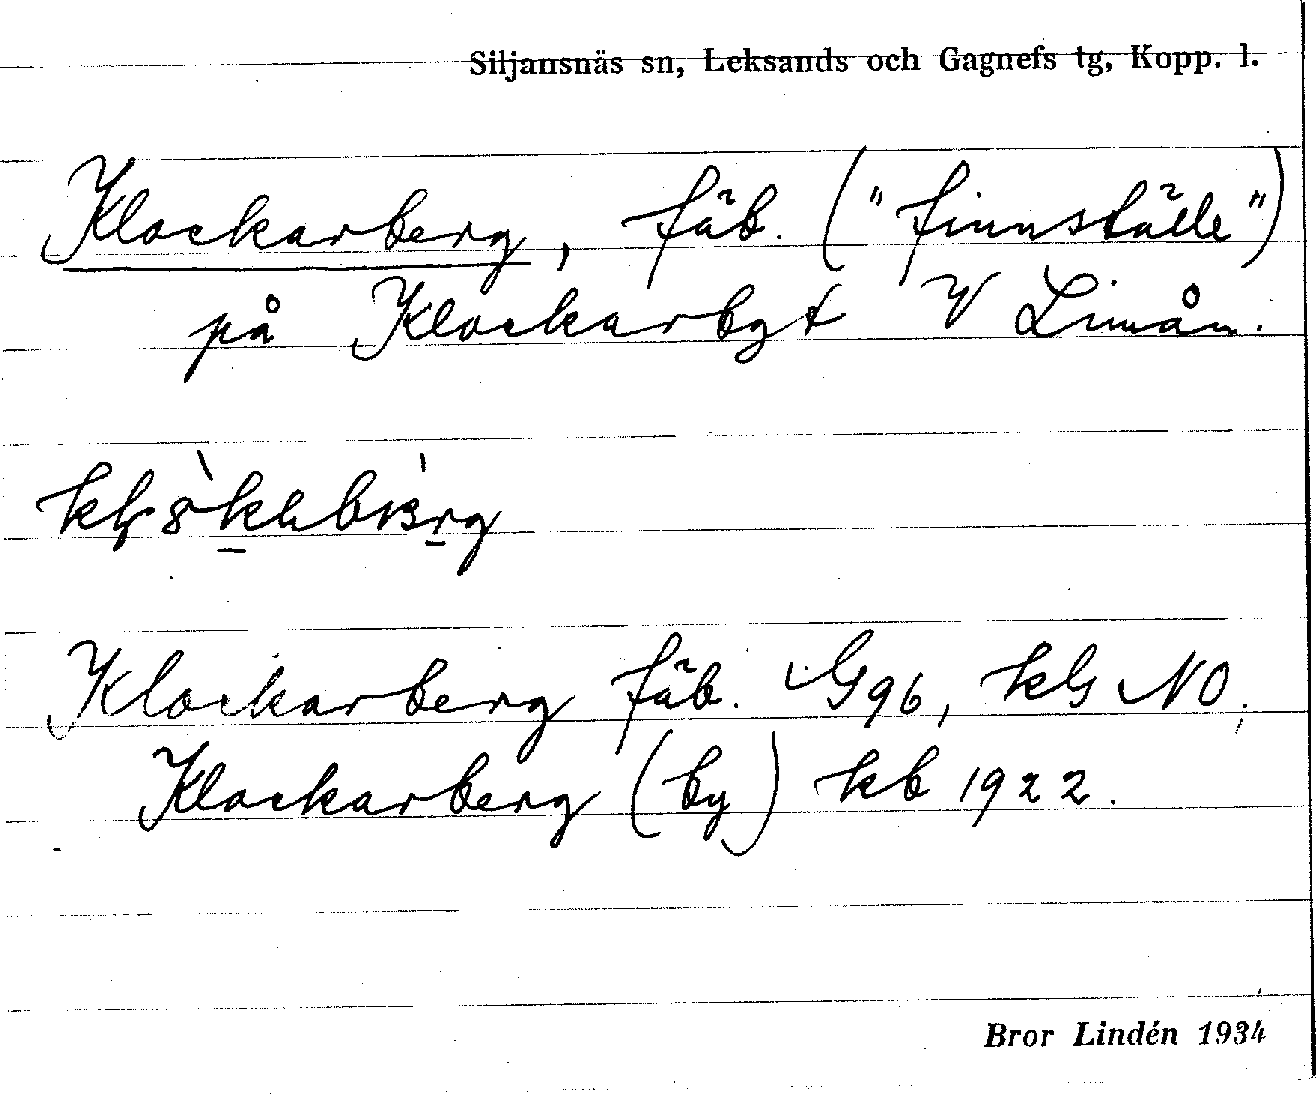 Siljansnäs sn, Leksands och Gagnefs tg, Kopp. l.
Klockarberg, fäb. ("finnställe")
på Klockarbyt V Limån.
Klockarberg fäb. G96, kG NO,
Klockarberg (by) kb 1922.
Bror Lindén 1934